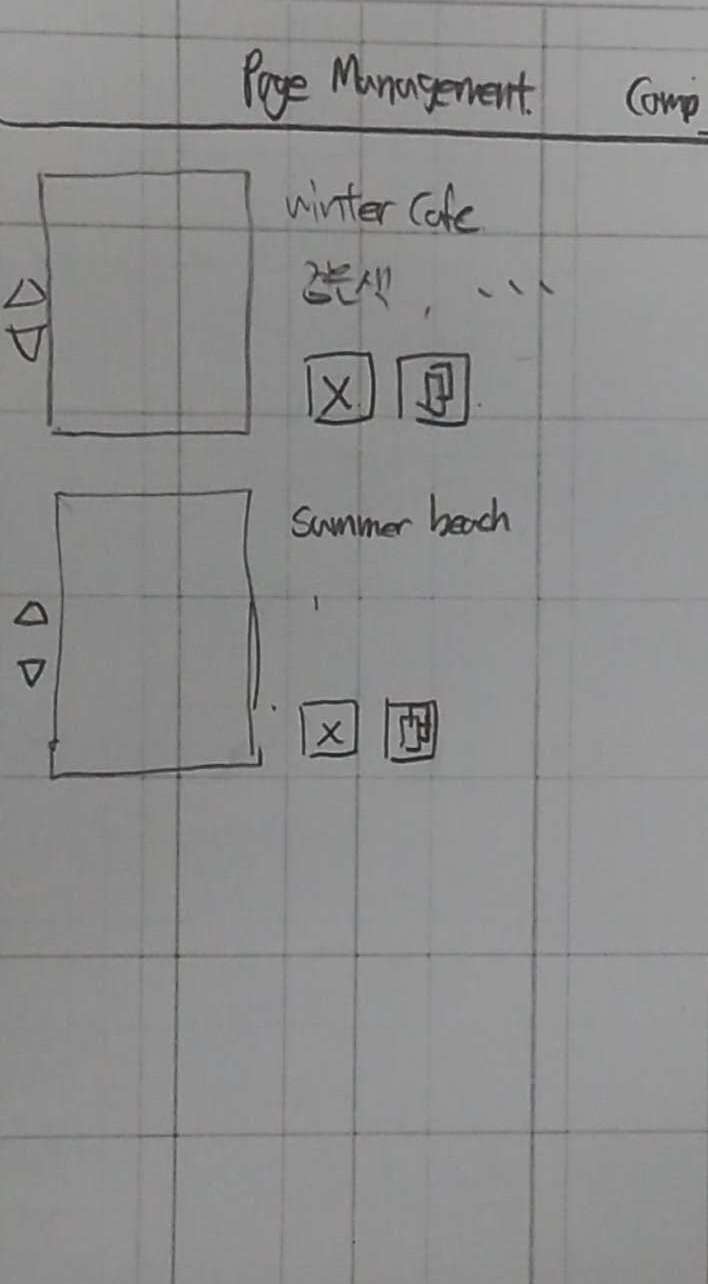 Page Management. Comp
winter Cafe
검은색, ...
X
summer beach
X